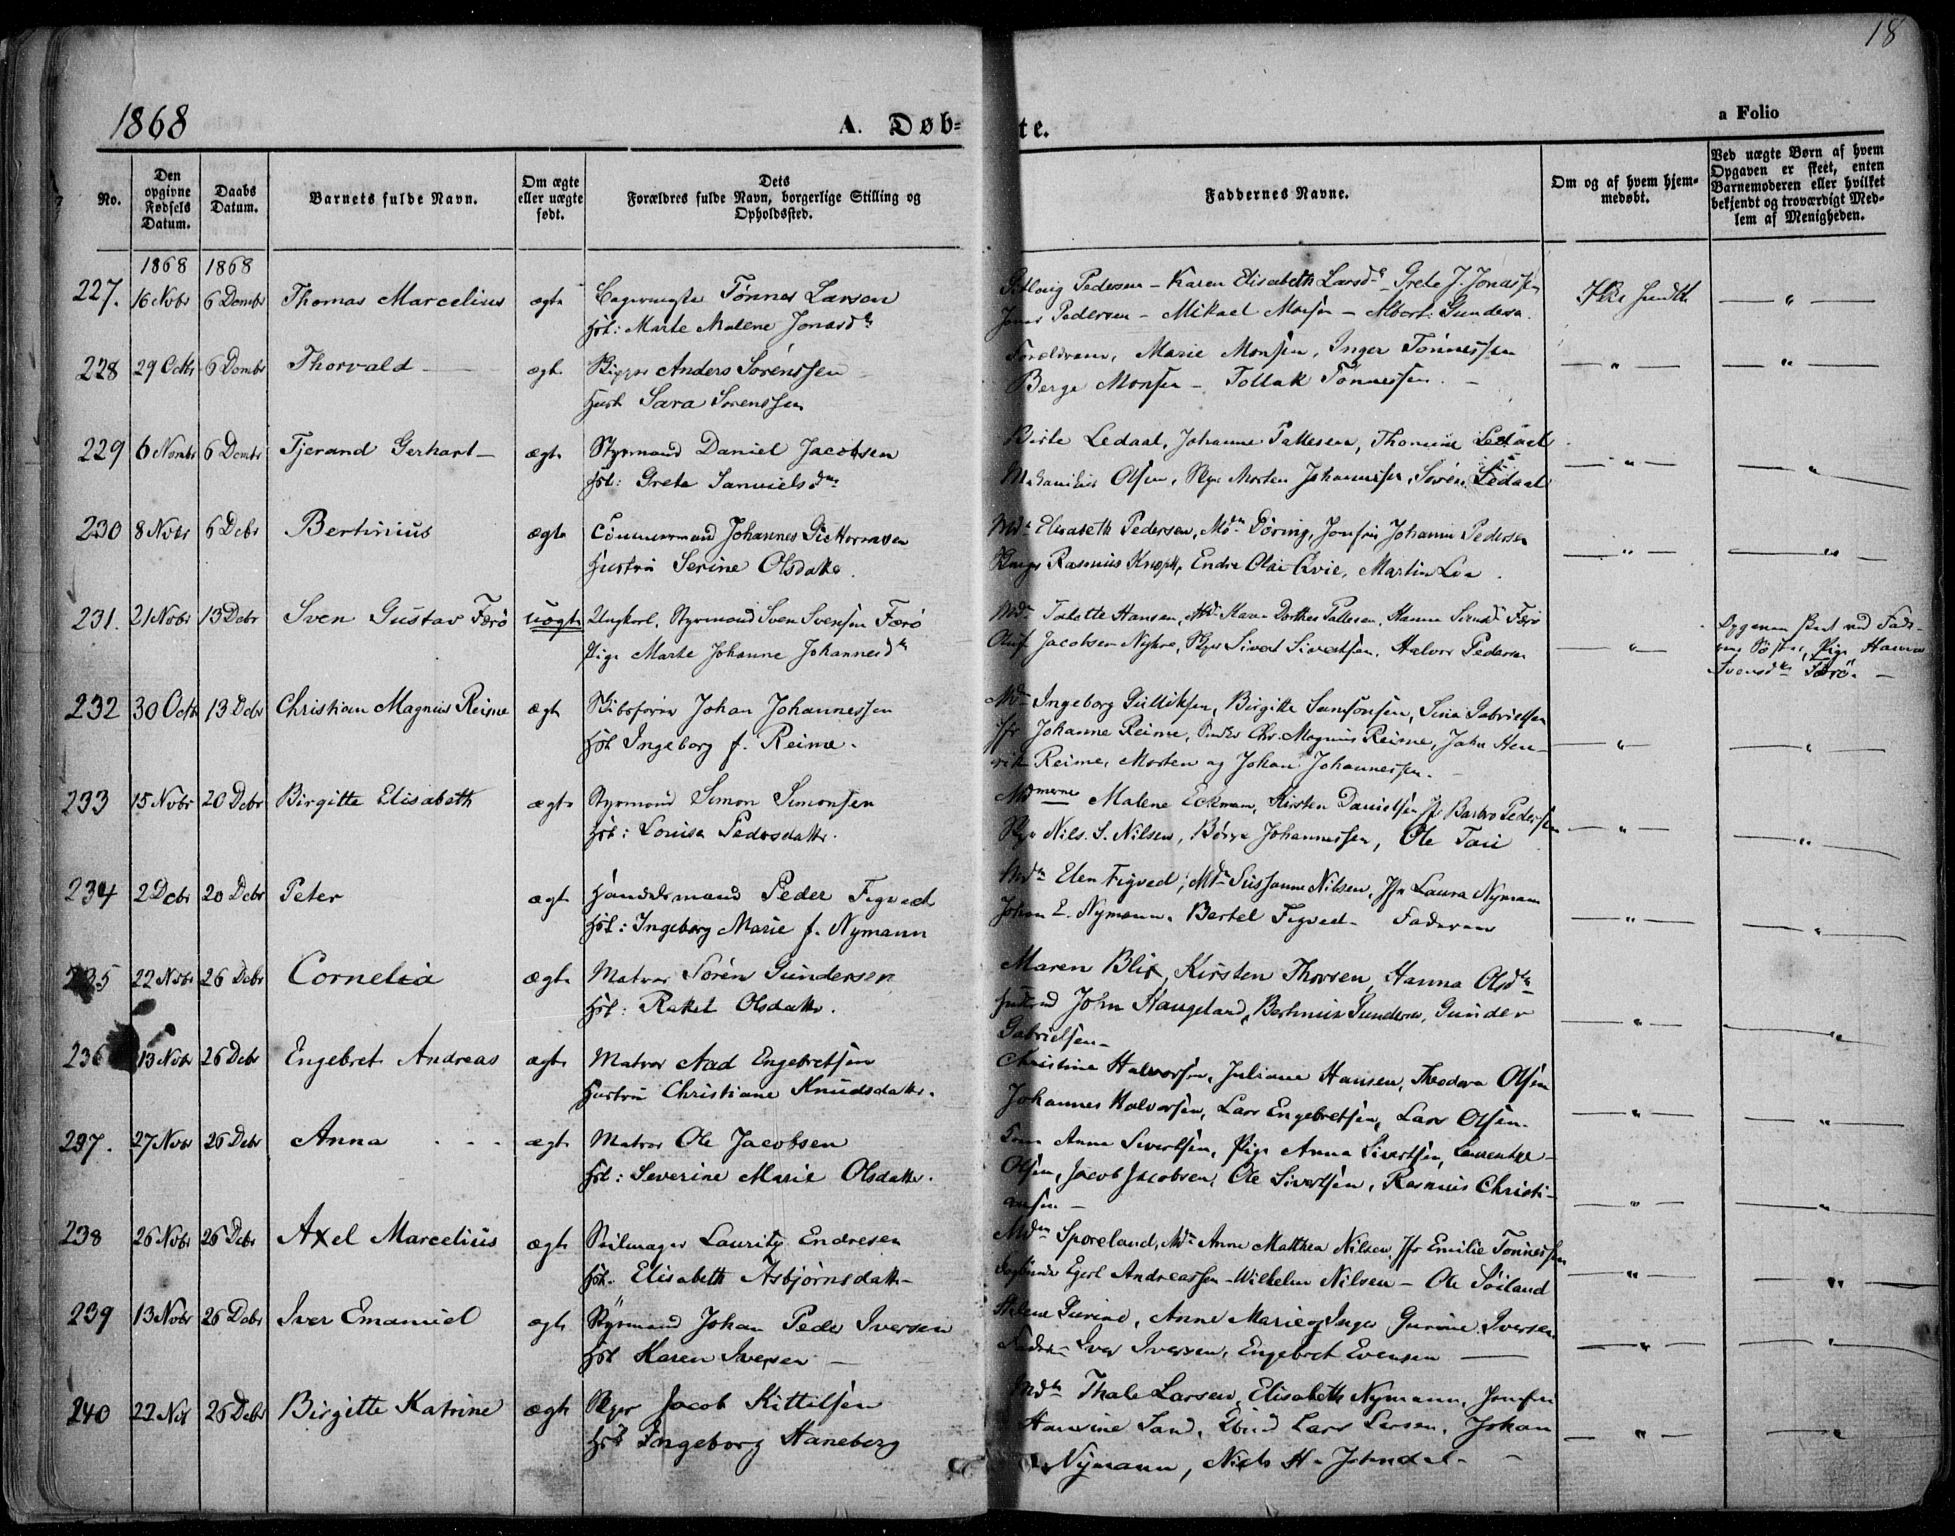 18
1868
A. Døb-
te.
a Folio
No.
Den opgivne Fødsels Datum.
Daabs Datum.
Barnets fulde Navn.
Om ægte eller uægte født.
Dets Forældres fulde Navn, borgerlige Stilling og Opholdssted.
Faddernes Navne.
Om og af hvem hjemmedøbt.
Ved uægte Børn af hvem Opgaven er skeet, enten Barnemoderen eller hvilket bekjendt og troværdigt Medlem af Menigheden.
1868 1868
227. 16 Novbr 6 Dembr Thomas Marcelius ægte Tønnes Larsen
Hst: Marte Malene Jonasdtr
Pedersen - Karen Elisabeth Larsdr - Grete J. Jonassen
Jonas Pedersen - Mikael Monsen - Gunders.
Ikke
228 29 Octb 6 Dembr Thorvald ægte Skipper Anders Sørenssen
Hust Sara Sørenssen
Forældrene, Marie Monsen, Inger Tønnessen
Berge Monsen - Tollak Tønnessen.
229 6 Novbr 6 Dembr Tjerand Gerhart ægte Styrmand Daniel Jacobsen
Hst: Grete Samuelsdtr
Birte Ledaal, Johanne Pallesen, Thomine Ledaal
Olsen, Skpr Morten Johannessen, Sören Ledaal
230 8 Novbr 6 Debr Bertinius ægte Tömmermand Johannes
Hustru Serine Olsdatter.
Mdm Elisabeth Pedersen, Mdm Döring, Jomfru Johanne Pedersen
Rasmus Knoph, Endre Olai Evie, Martin Lea.
231. 21 Novbr 13 Debr Sven Gustav Færö uægte Ungkarl, Styrmand Sven Svensen Færö
Pige Marte Johanne Johannesdtr
Mdm Talette Hansen, Mdm Karen Dorthea Pallesen, Hanna Svensdr Færö
Oluf Jacobsen Nykre, Skpr Sivert Sivertsen, Halvor Pedersen
Opgaven skeet ved Faderens Söster, Pige Hanna
Svensdtr Færö.
232 30 Octb 13 Debr Christian Magnus Reime ægte Skibsfører Johan Johannessen
Hst Ingeborg f. Reime.
Mdm Ingeborg Gulliksen, Birgitte Samsonsen, Sina Gabrielsen
Jfr Johanne Reime, Chr. Magnus Reime, John Hen-
rik Reime, Morten og Johan Johannessen.
233 15 Novbr 20 Debr Birgitte Elisabeth ægte Styrmand Simon Simonsen
Hst: Louise Pedersdatter.
Mdmerne Malene Eckman, Kirsten Danielsen, Jfr Barbro Pedersen
Skpr Nils. S. Nilsen, Börre Johannessen, Ole
234 2 Debr 20 Debr Peter ægte Handelsmand Peder Figved
Hst: Ingeborg Marie f. Nymann
Mdm Elen Figved, Mdm Susanne Nilsen, Jfr Laura Nyman
Johan E. Nymann, Bertel Figved - Faderen
235 22 Novbr 26 Debr Cornelia ægte Matros Sören Gundersen
Hst: Rakel Olsdatter.
Maren Blix, Kirsten Thorsen, Hanna Olsdtr
John Haugeland, Bertinius Gundersen, Gunder
Gabrielsen
236 13 Novbr 26 Debr Engebret Andreas ægte Matros Aad Engebretsen
Hustru Christiane Knudsdatter.
Christine Halvorsen, Juliane Hansen, Theodora Olsen
Johannes Halvorsen, Lars Engebretsen, Lars Olsen.
237. 27 Novbr 26 Debr Anna ægte Matros Ole Jacobsen
Hst: Severine Marie Olsdatter.
Anna Sivertsen, Pige Anna Sivertsen, Laurentze
Olsen, Jacob Jacobsen, Ole Sivertsen, Rasmus Christi-
ansen
238 26 Novbr 26 Debr Axel Marcelius ægte Seilmager Lauritz Endresen
Hst. Elisabeth Asbjörnsdatter
Mdm Sporeland, Mdm Anne Matthea Nilsen, Jfr Emilie Tönnessen
Egert Andreassen - Wilhelm Nilsen - Ole Söiland
239 13 Novbr 26 Debr Iver Emanuel ægte Styrmand Johan Peder Iversen
Hst Karen Iversen
Anne Marie og Inger Gurine Iversen
Faderen Iver Iversen, Engebret Evensen
240 22 Nov 26 Debr Birgitte Katrine ægte Skpr Jacob Kittelsen
Hst Ingeborg Haneberg
Mdm Thale Larsen, Elisabeth Nymann, Jomfru
Sand, Lars Larsen, Johan
Nymann, Niels H.